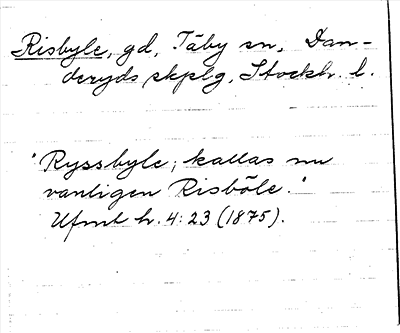 Risbyle, gd, Täby sn, Dan-
deryds skplg, Stockh. l.
"Ryssbyle; kallas nu
vanligen Risböle."
Ufmt h. 4: 23 (1875).